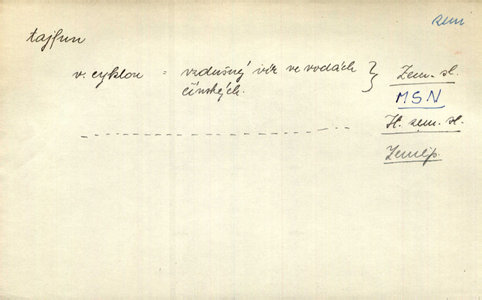 zem
tajfun
v. cyklon = vzdušný vír ve vodách } Zem. sl.
čínských.
MSN
Zeměp.